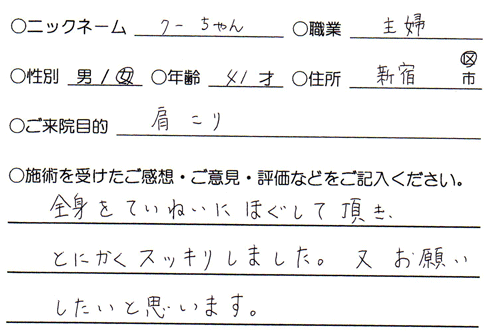 ○ニックネーム クーちゃん ○職業 主婦
○性別 男/女 ○年齢 41才 ○住所 新宿 区 市
○ご来院目的 肩こり
○施術を受けたご感想・ご意見・評価などをご記入ください。
全身をていねいにほぐして頂き、
とにかくスッキリしました。又お願い
したいと思います。